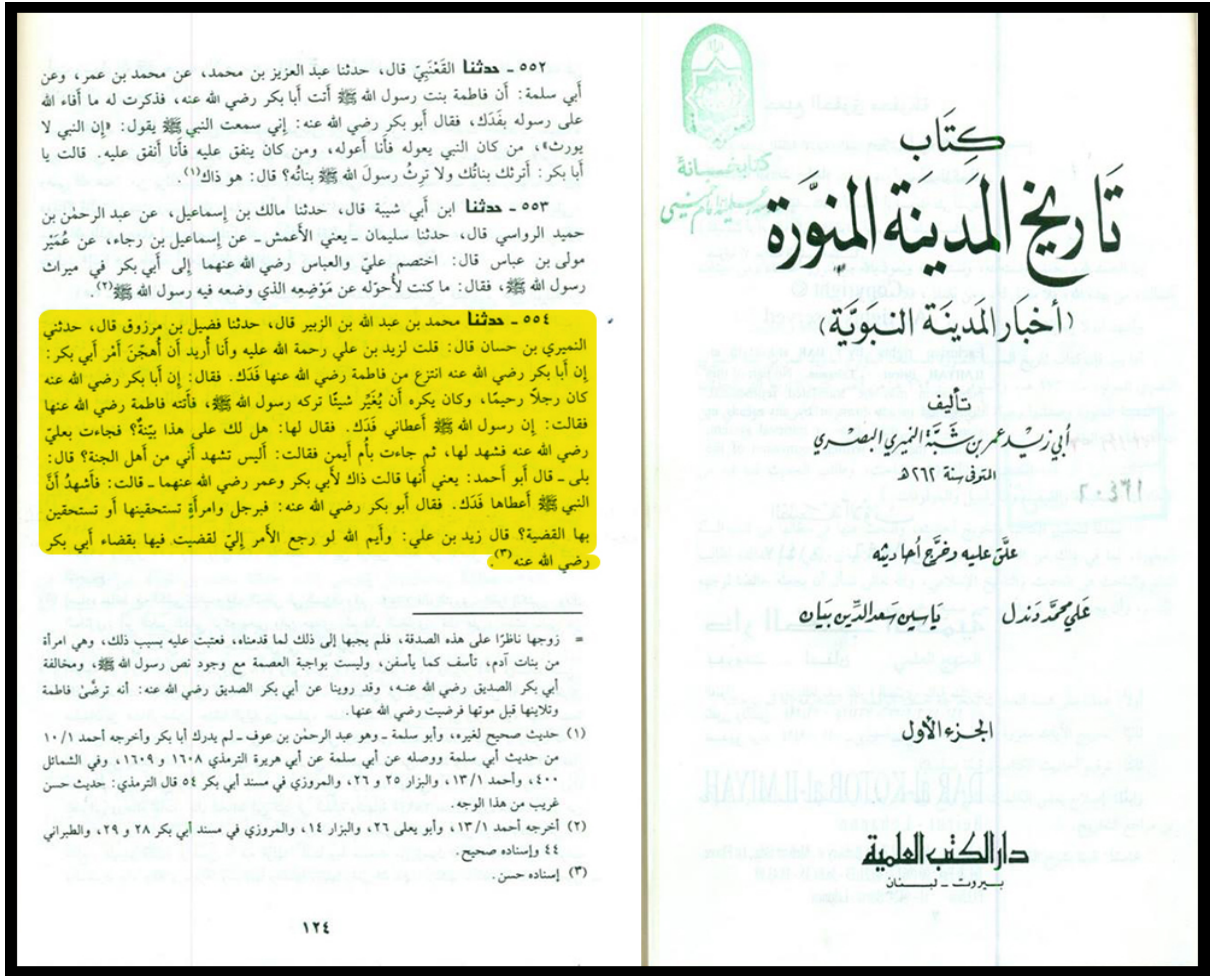 كِتَاب
تَاريخ المَدينَة المنِوَّرَة
(أخبار المَدينَة النبويّة)
تأليف
أبي زيد عمر بن شَبَّة النميري البصري
المتوفى سنة ٢٦٢هـ
علق عليه وخرّج أحاديثه
علي محمد دندل    ياسين سعد الدين بيان
الجزء الأول
دار الكتب العلمية
بيروت - لبنان
كتابخانة
٥٥٢ - حدثنا القَعْنَبِيّ قال، حدثنا عبد العزيز بن محمد، عن محمد بن عمر، وعن
أبي سلمة: أن فاطمة بنت رسول الله ﷺ أتت أبا بكر رضي الله عنه، فذكرت له ما أفاء الله
على رسوله بِفَدَك، فقال أبو بكر رضي الله عنه: إني سمعت النبي ﷺ يقول: «إن النبي لا
يورث»، من كان النبي يعوله فأنا أعوله، ومن كان ينفق عليه فأنا أنفق عليه. قالت يا
أبا بكر: أترثك بناتُك ولا ترثُ رسولَ الله ﷺ بناتُه؟ قال: هو ذاك(١).
٥٥٣ - حدثنا ابن أبي شيبة قال، حدثنا مالك بن إسماعيل، عن عبد الرحمٰن بن
حميد الرواسي قال، حدثنا سليمان - يعني الأعمش - عن إسماعيل بن رجاء، عن عُمَيْر
مولى بن عباس قال: اختصم عليّ والعباس رضي الله عنهما إلى أبي بكر في ميراث
رسول الله ﷺ، فقال: ما كنت لأحوّله عن مَوْضِعِه الذي وضعه فيه رسول الله ﷺ(٢).
٥٥٤ - حدثنا محمد بن عبد الله بن الزبير قال، حدثنا فضيل بن مرزوق قال، حدثني
النميري بن حسان قال: قلت لزيد بن علي رحمة الله عليه وأنا أُريد أن أُهجّنَ أمْر أبي بكر:
إن أبا بكر رضي الله عنه انتزع من فاطمة رضي الله عنها فَدَك. فقال: إن أبا بكر رضي الله عنه
كان رجلاً رحيمًا، وكان يكره أن يُغَيّر شيئًا تركه رسول الله ﷺ، فأتته فاطمة رضي الله عنها
فقالت: إن رسول الله ﷺ أعطاني فَدَك. فقال لها: هل لك على هذا بيّنة؟ فجاءت بعليّ
رضي الله عنه فشهد لها، ثم جاءت بأُم أيمن فقالت: أليس تشهد أني من أهل الجنة؟ قال:
بلى - قال أبو أحمد: يعني أنها قالت ذاك لأبي بكر وعمر رضي الله عنهما - قالت: فأشهدُ أنَّ
النبي ﷺ أعطاها فَدَك. فقال أبو بكر رضي الله عنه: فبرجل وامرأةٍ تستحقينها أو تستحقين
بها القضية؟ قال زيد بن علي: وأيم الله لو رجع الأمر إليّ لقضيت فيها بقضاء أبي بكر
رضي الله عنه(٣).
= زوجها ناظرًا على هذه الصدقة، فلم يجبها إلى ذلك لما قدمناه، فعتبت عليه بسبب ذلك، وهي امرأة
من بنات آدم، تأسف كما يأسفن، وليست بواجبة العصمة مع وجود نص رسول الله ﷺ، ومخالفة
أبي بكر الصديق رضي الله عنه، وقد روينا عن أبي بكر الصديق رضي الله عنه: أنه ترضّى فاطمة
وتلاينها قبل موتها فرضيت رضي الله عنها.
(١) حديث صحيح لغيره، وأبو سلمة - وهو عبد الرحمٰن بن عوف - لم يدرك أبا بكر وأخرجه أحمد ١٠/١
من حديث أبي سلمة ووصله عن أبي سلمة عن أبي هريرة الترمذي ١٦٠٨ و ١٦٠٩، وفي الشمائل
٤٠٠، وأحمد ١٣/١، والبزار ٢٥ و ٢٦، والمروزي في مسند أبي بكر ٥٤ قال الترمذي: حديث حسن
غريب من هذا الوجه.
(٢) أخرجه أحمد ١٣/١، وأبو يعلى ٢٦، والبزار ١٤، والمروزي في مسند أبي بكر ٢٨ و ٢٩، والطبراني
٤٤ وإسناده صحيح.
(٣) إسناده حسن.
١٢٤